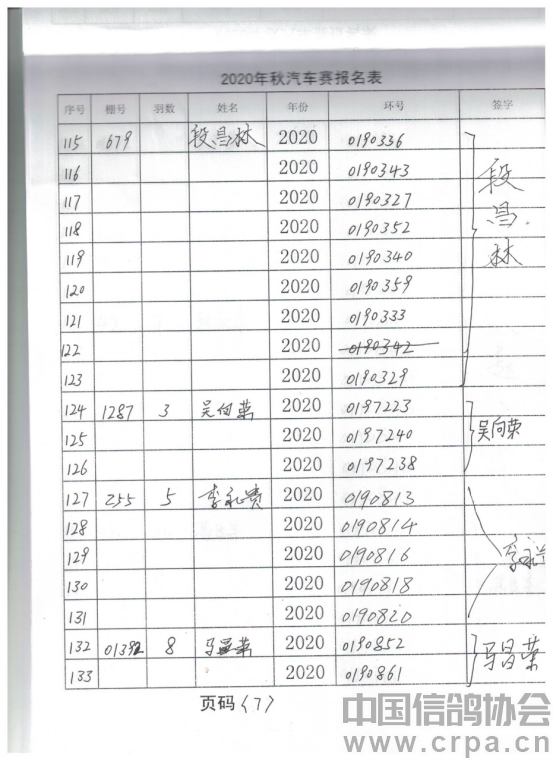 2020年秋汽车赛报名表
序号 棚号 羽数 姓名 年份 环号 签字
115 679 段昌林 2020 0190336
116 2020 0190343
117 2020 0190327
118 2020 0190352
119 2020 0190340
120 2020 0190359
121 2020 0190333
122 2020 0190342
123 2020 0190329
段昌林
124 1287 3 吴向荣 2020 0197223
125 2020 0197240
126 2020 0197238
吴向荣
127 255 5 李永贵 2020 0190813
128 2020 0190814
129 2020 0190816
130 2020 0190818
131 2020 0190820
李永
132 8 马昌荣 2020 0190852
133 2020 0190861
马昌荣
页码(7)
中国信鸽协会
www.crpa.cn